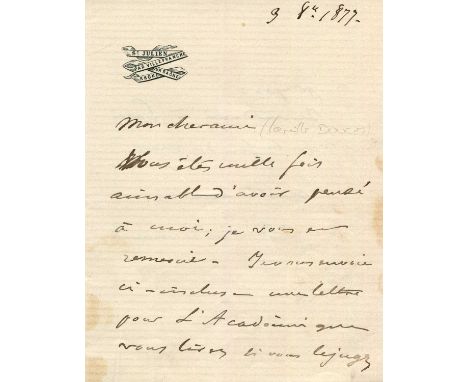 9 8bre 1877.
St JULIEN
PAR VILLEFRANCHE
RHÔNE
Mon cher ami
Vous êtes mille fois
aimable d'avoir pensé
à moi; je vous en
remercie - Je vous envoie
ci-inclus - une lettre
pour l'Académie que
vous lirez si vous le jugez